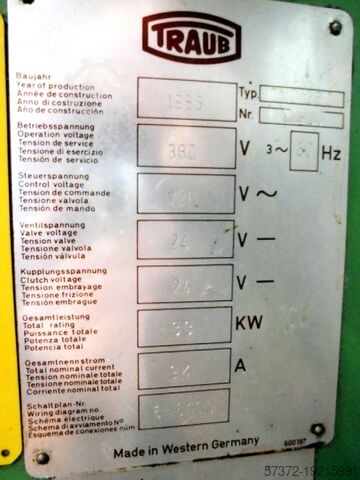 TRAUB
Baujahr
Year of production
Année de construction
Anno di costruzione
Año de construcción
Typ.
Nr.
Betriebsspannung
Operation voltage
Tension de service
Tensione di esercizio
Tensión de servicio
380 V 3~ Hz
Steuerspannung
Control voltage
Tension de commande
Tensione valvola
Tensión de mando
V ~
Ventilspannung
Valve voltage
Tension valve
Tensione valvola
Tensión válvula
24 V —
Kupplungsspannung
Clutch voltage
Tension embrayage
Tensione frizione
Tension embrague
24 V —
Gesamtleistung
Total rating
Puissance totale
Potenza totale
Potencia total
KW
Gesamtnennstrom
Total nominal current
Tension nominale totale
Tensione nominale totale
Corriente nominal total
A
Schaltplan-Nr.
Wiring diagram no.
Schéma électrique
Schema di avviamento N°
Esquema de conexiones núm
Made in Western Germany
600187
57372-19215991